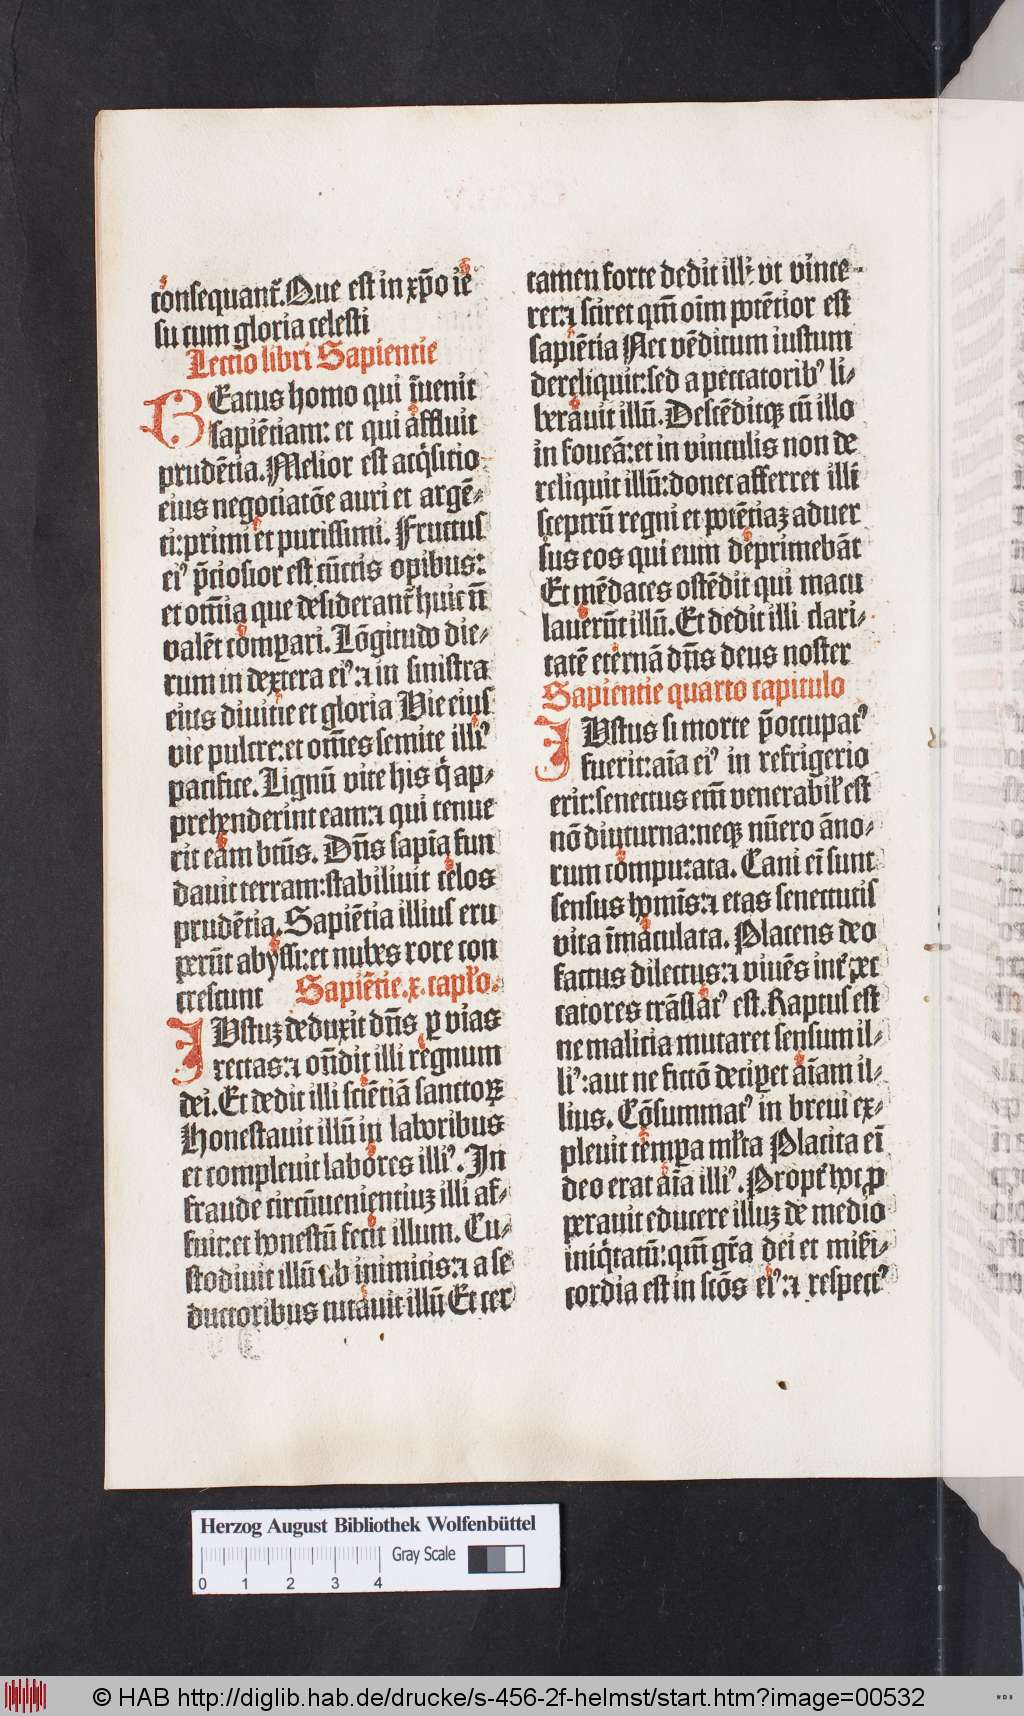 consequant᷑. Que est in xp̄o ie
su cum gloria celesti
Lectio libri Sapientie
BEatus homo qui īuenit
sapiētiam: et qui affluit
prudētia. Melior est acq̇sitio
eius negociatōe auri et argē-
ti: primi et purissimi. Fructus
eiꝰ p̄ciosior est cūctis opibus:
et om̄ia que desiderant᷑ huic n̄
valēt cōmpari. Lōgitudo die-
rum in dextera eiꝰ: ⁊ in sinistra
eius diuitie et gloria Vie eius
vie pulcre: et om̄es semite illiꝰ
pacifice. Lignū vite his q̇ ap-
prehenderint eam: ⁊ qui tenue
rit eam btūs. Dn̄s sapia fun
dauit terram: stabiliuit celos
prudētia. Sapiētia illius eru
perūt abyssi: et nubes rore con
crescunt
Sapiētie .x. capl̄o.
IUstuȝ deduxit dn̄s ꝑ vias
rectas: ⁊ on̄dit illi regnum
dei. Et dedit illi sciētiā sanctoꝝ
Honestauit illū in laboribus
et compleuit labores illiꝰ. In
fraude circūuenientiuȝ illi af-
fuit: et honestū fecit illum. Cu-
stodiuit illū ab inimicis: ⁊ a se
ductoribus tutauit illū Et cer
tamen forte dedit illi: vt vince-
ret: ⁊ sciret qm̄ oīm potētior est
sapiētia Nec vēditum iustum
dereliquit: sed a peccatoribꝰ li-
berauit illū. Descēditqꝫ cū illo
in foueā: et in vinculis non de
reliquit illū: donec afferret illi
sceptrū regni et potētiaȝ aduer
sus eos qui eum deprimebāt
Et mēdaces ostēdit qui macu
lauerūt illū. Et dedit illi clari-
tatē eternā dn̄s deus noster
Sapientie quarto capitulo
IUstus si morte p̄occupatꝰ
fuerit: aīa eiꝰ in refrigerio
erit: senectus em̄ venerabil̄ est
nō diuturna: neqꝫ nūero āno-
rum compu:ata. Cani eī sunt
sensus homīs: ⁊ etas senectutis
vita īmaculata. Placens deo
factus dilectus: ⁊ viuēs int᷑ pec
catores trāslatꝰ est. Raptus est
ne malicia mutaret sensum il-
liꝰ: aut ne fictō deciperet aīam il-
lius. Cōsummatꝰ in breui ex-
pleuit tempa ml̄ta Placita eī
deo erat aīa illiꝰ. Propt᷑ hoc ꝓ
perauit educere illuȝ de medio
iniq̇tatū: qm̄ gr̄a dei et mis̄i-
cordia est in scōs eiꝰ: ⁊ respectꝰ
Herzog August Bibliothek Wolfenbüttel
0 1 2 3 4
Gray Scale
© HAB http://diglib.hab.de/drucke/s-456-2f-helmst/start.htm?image=00532